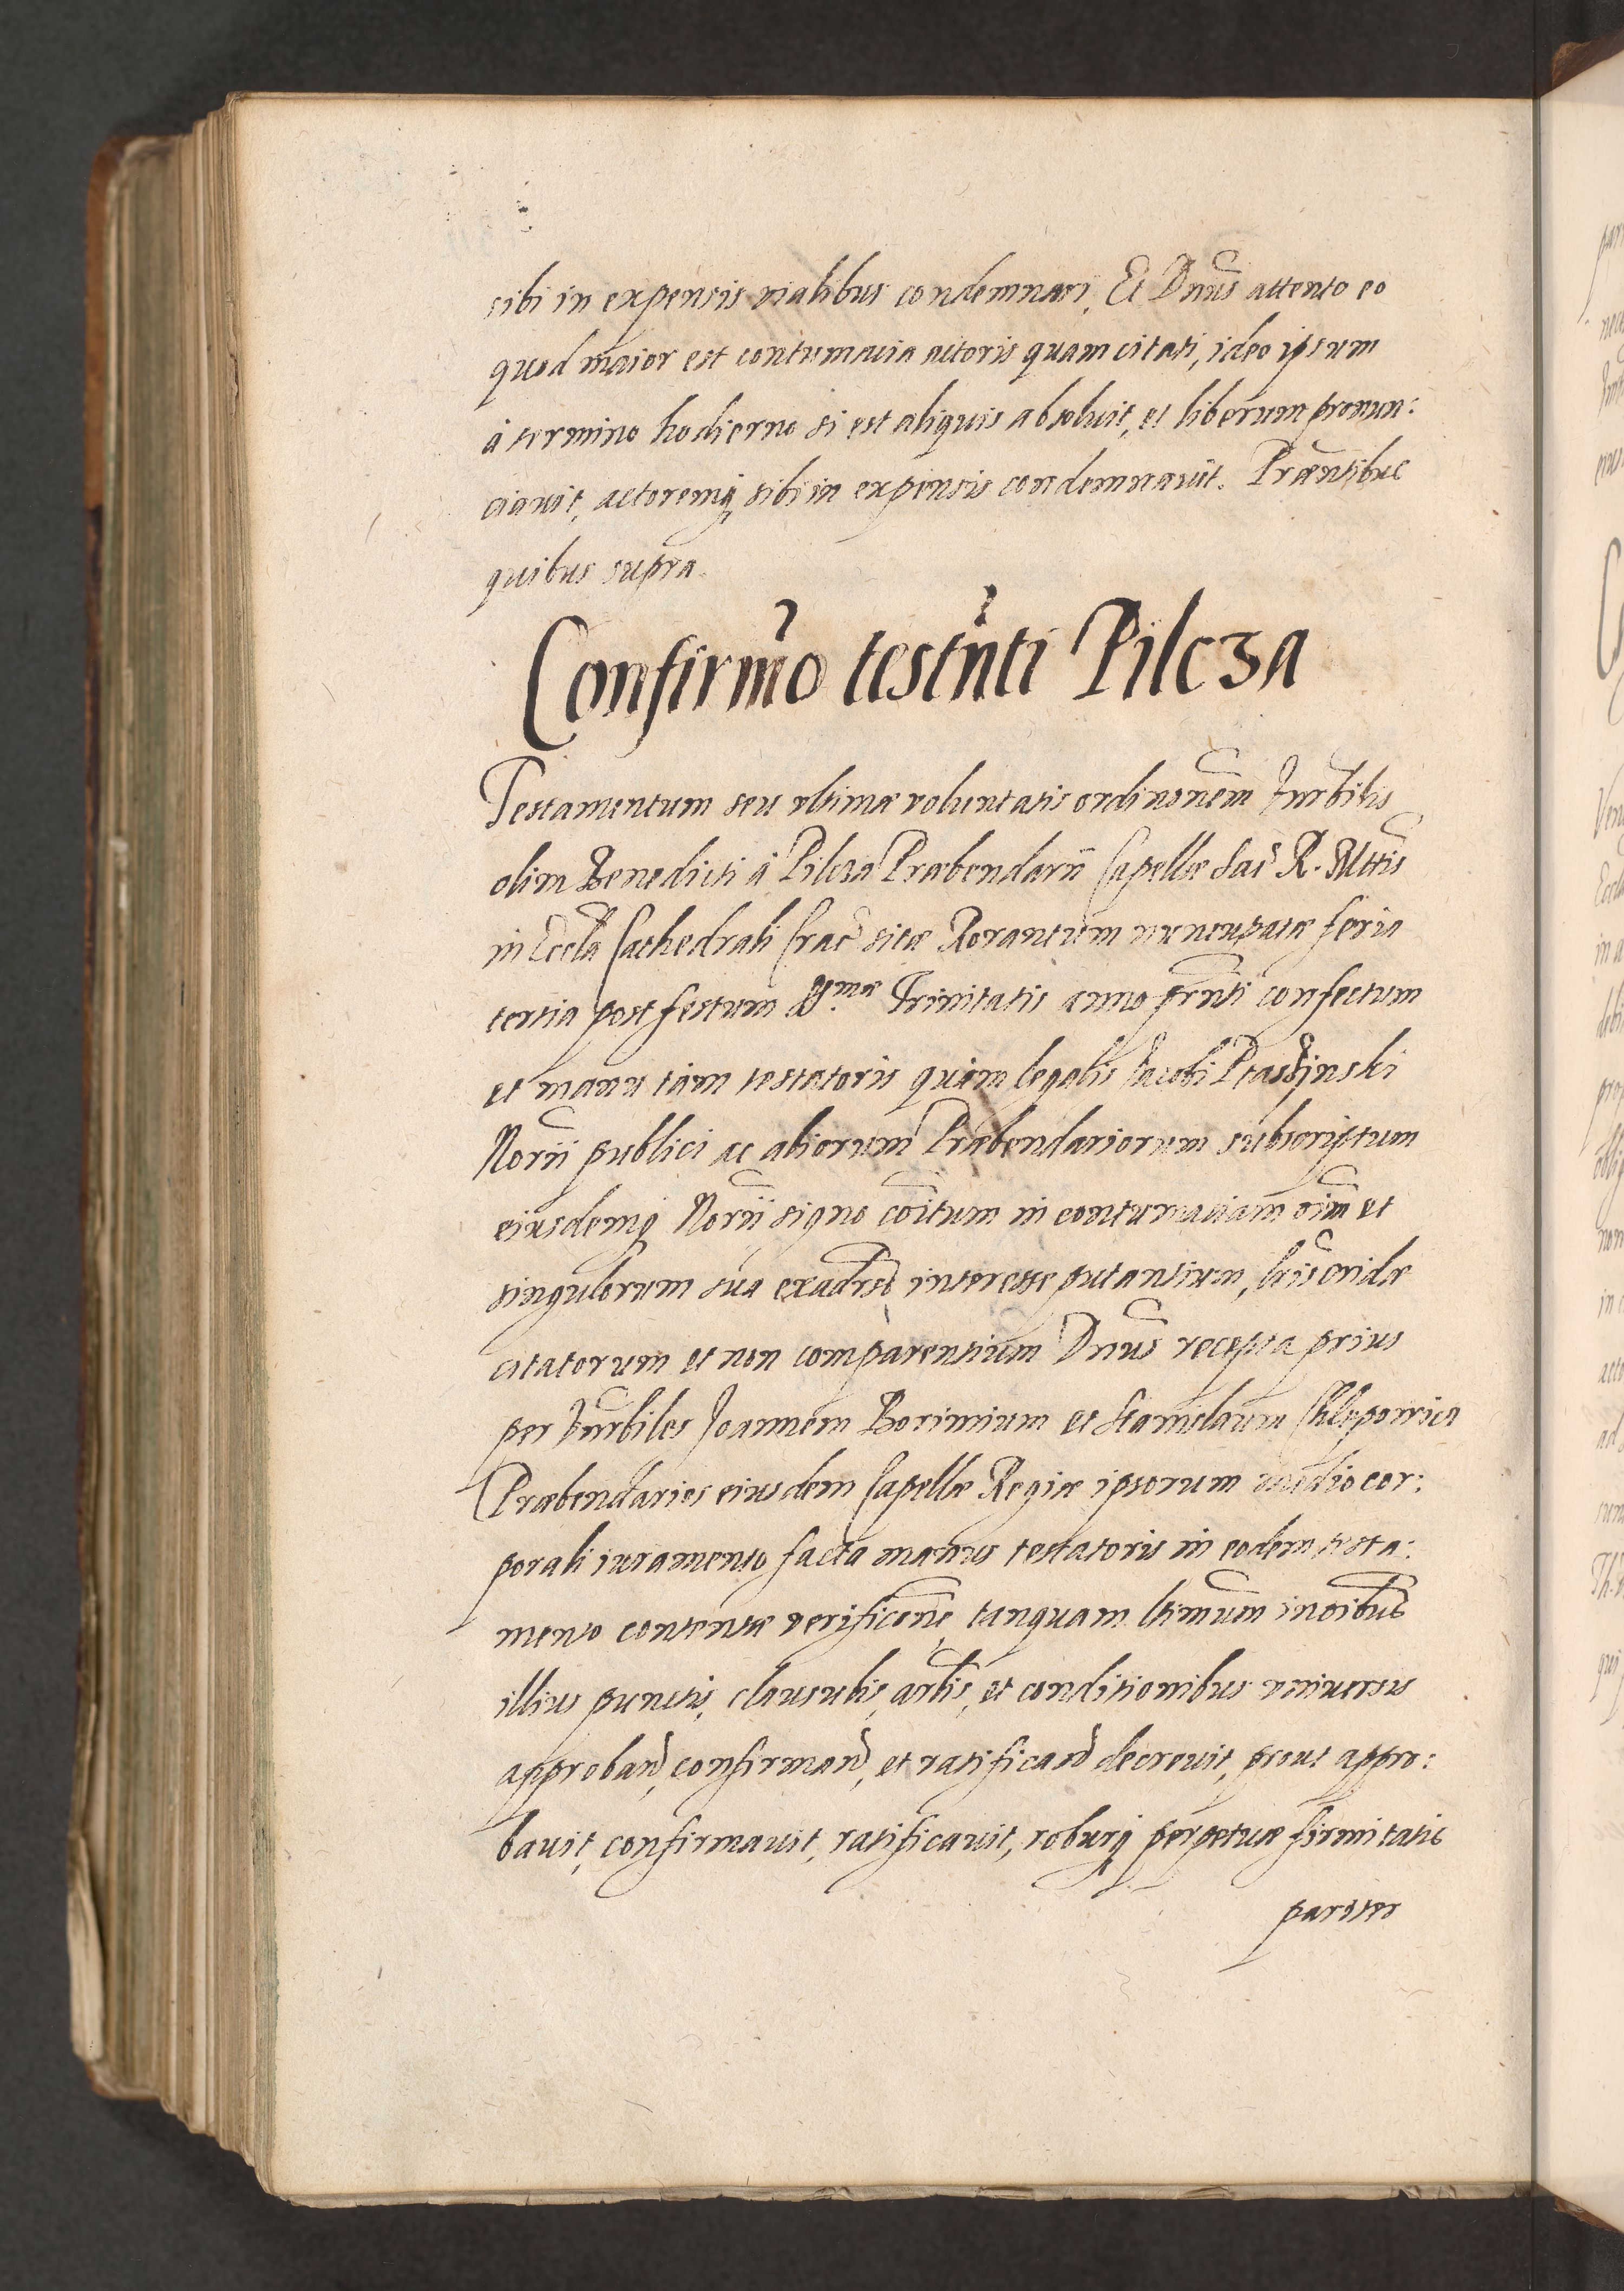 sibi in expensis vialibus condemnari. Et Dnus attento eo
quod maior est contumacia actoris quam citati, ideo ipsum
à termino hodierno si est aliquis absoluit, et liberum pronun:
ciauit, actoremq sibi in expensis condemnauit. Præntibus
quibus supra.
Confirmo testnti Pilcza
Testamentum seu vltimæ voluntatis ordinonem Hnrbilis
olim Benedicti à Pilcza Præbendarii Capellæ Sac R. Mttis
in Eccla Cathedrali Crac sitæ Rorantium nuncupatæ feria
tertia post festum Smæ Trinitatis anno prnti confectum
et manu tam testatoris quam legalis Jacobi
Norii publici ac aliorum Præbendariorum subscriptum
eiusdemq Norii signo coitum in contumaciam oium et
singulorum sua interesse putantium,
citatorum et non comparentium Dnus recepta prius
per Hnrbiles Joannem Borimium et Stanislaum
Præbendarios eiusdem Capellæ Regiæ ipsorum medio cor:
porali iuramento facta manus testatoris in eodem testa:
mento contentæ verificone, tanquam ltimum in oibus
illius punctis, clausulis, artlis, et conditionibus vniuersis
approband, confirmand, et ratificand decreuit, prout appro:
bauit, confirmauit, ratificauit, roburq perpetuæ firmitatis
pariter